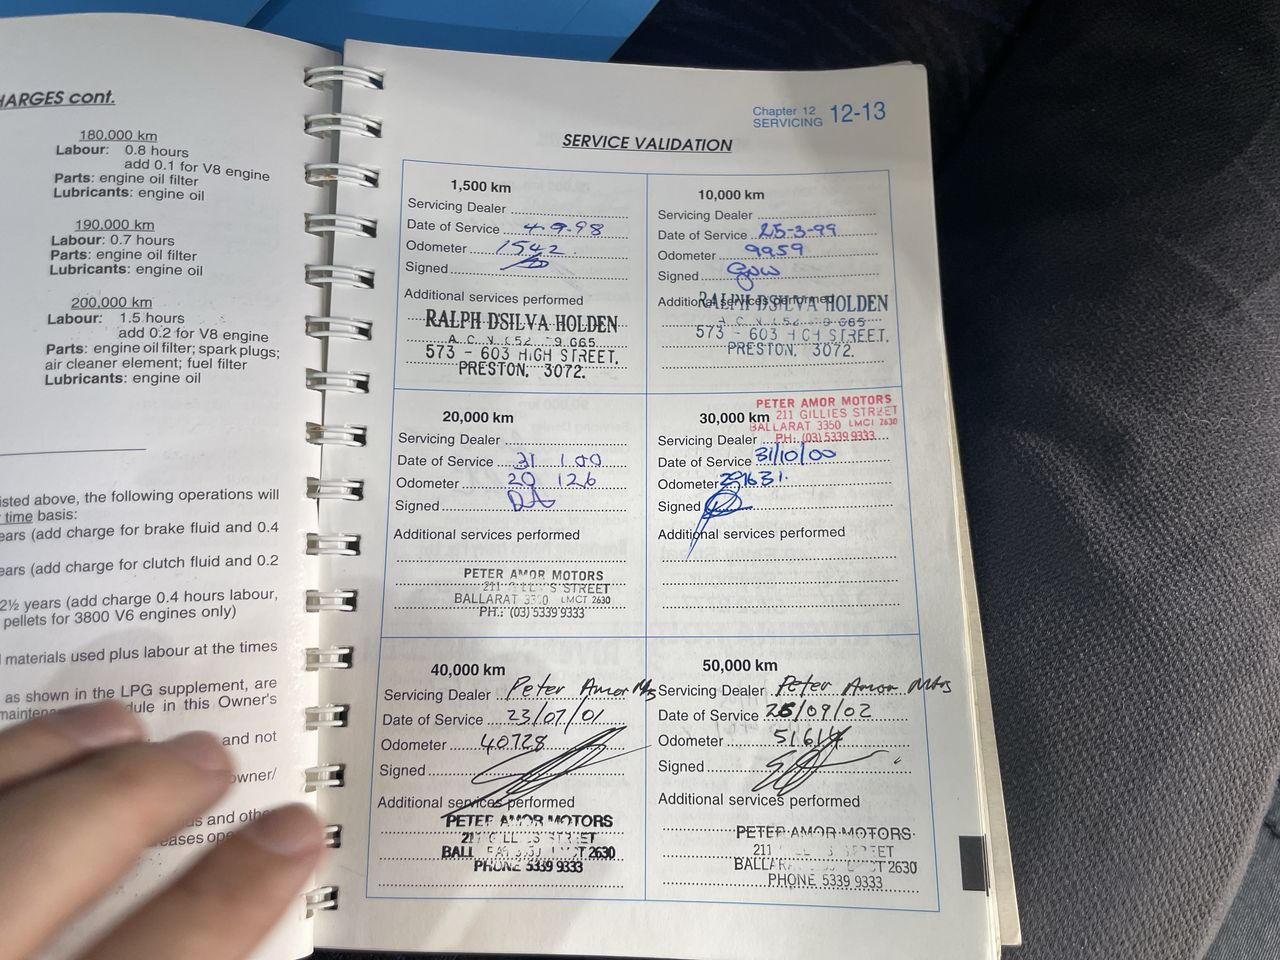 HARGES cont.
180,000 km
Labour: 0.8 hours
add 0.1 for V8 engine
Parts: engine oil filter
Lubricants: engine oil
190,000 km
Labour: 0.7 hours
Parts: engine oil filter
Lubricants: engine oil
200,000 km
Labour: 1.5 hours
add 0.2 for V8 engine
Parts: engine oil filter; spark plugs;
air cleaner element; fuel filter
Lubricants: engine oil
isted above, the following operations will
time basis:
ears (add charge for brake fluid and 0.4
ears (add charge for clutch fluid and 0.2
2½ years (add charge 0.4 hours labour,
pellets for 3800 V6 engines only)
materials used plus labour at the times
as shown in the LPG supplement, are
dule in this Owner's
and not
owner/
and othe
eases ope
Chapter 12
SERVICING 12-13
SERVICE VALIDATION
1,500 km
Servicing Dealer
Date of Service 4-9-98
Odometer 1542
Signed
Additional services performed
RALPH D'SILVA HOLDEN
573 - 603 HIGH STREET,
PRESTON, 3072.
10,000 km
Servicing Dealer
Date of Service 25-3-99
Odometer 9959
Signed
Additional services performed
RALPH D'SILVA HOLDEN
573 - 603 HIGH STREET,
PRESTON, 3072.
20,000 km
Servicing Dealer
Date of Service 31 1 00
Odometer 20 126
Signed DA
Additional services performed
PETER AMOR MOTORS
211 GILLIES STREET
BALLARAT 3350 LMCT 2630
PH.: (03) 5339 9333
30,000 km
PETER AMOR MOTORS
211 GILLIES STREET
BALLARAT 3350 LMCT 2630
PH.: (03) 5339 9333
Servicing Dealer
Date of Service 31/10/00
Odometer 29631
Signed
Additional services performed
40,000 km
Servicing Dealer Peter Amor Mtrs
Date of Service 23/07/01
Odometer 40728
Signed
Additional services performed
PETER AMOR MOTORS
211 GILLIES STREET
BALLARAT 3350 LMCT 2630
PHONE 5339 9333
50,000 km
Servicing Dealer Peter Amor Mtrs
Date of Service 26/09/02
Odometer 51614
Signed
Additional services performed
PETER AMOR MOTORS
211 GILLIES STREET
BALLARAT 3350 LMCT 2630
PHONE 5339 9333